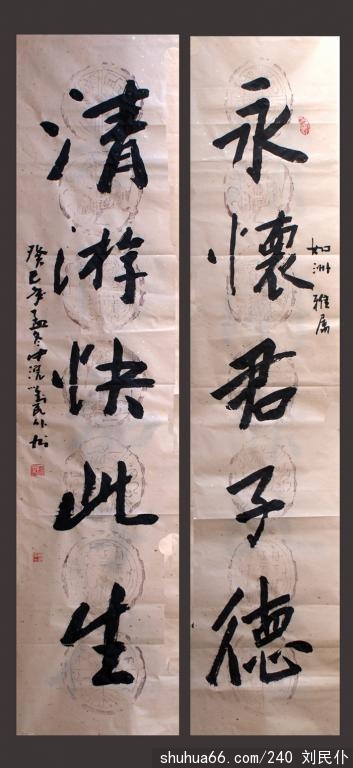 永懷君子德
如洲雅属
清游快此生
癸巳年孟冬中浣刘民仆书
shuhua66.com/240 刘民仆